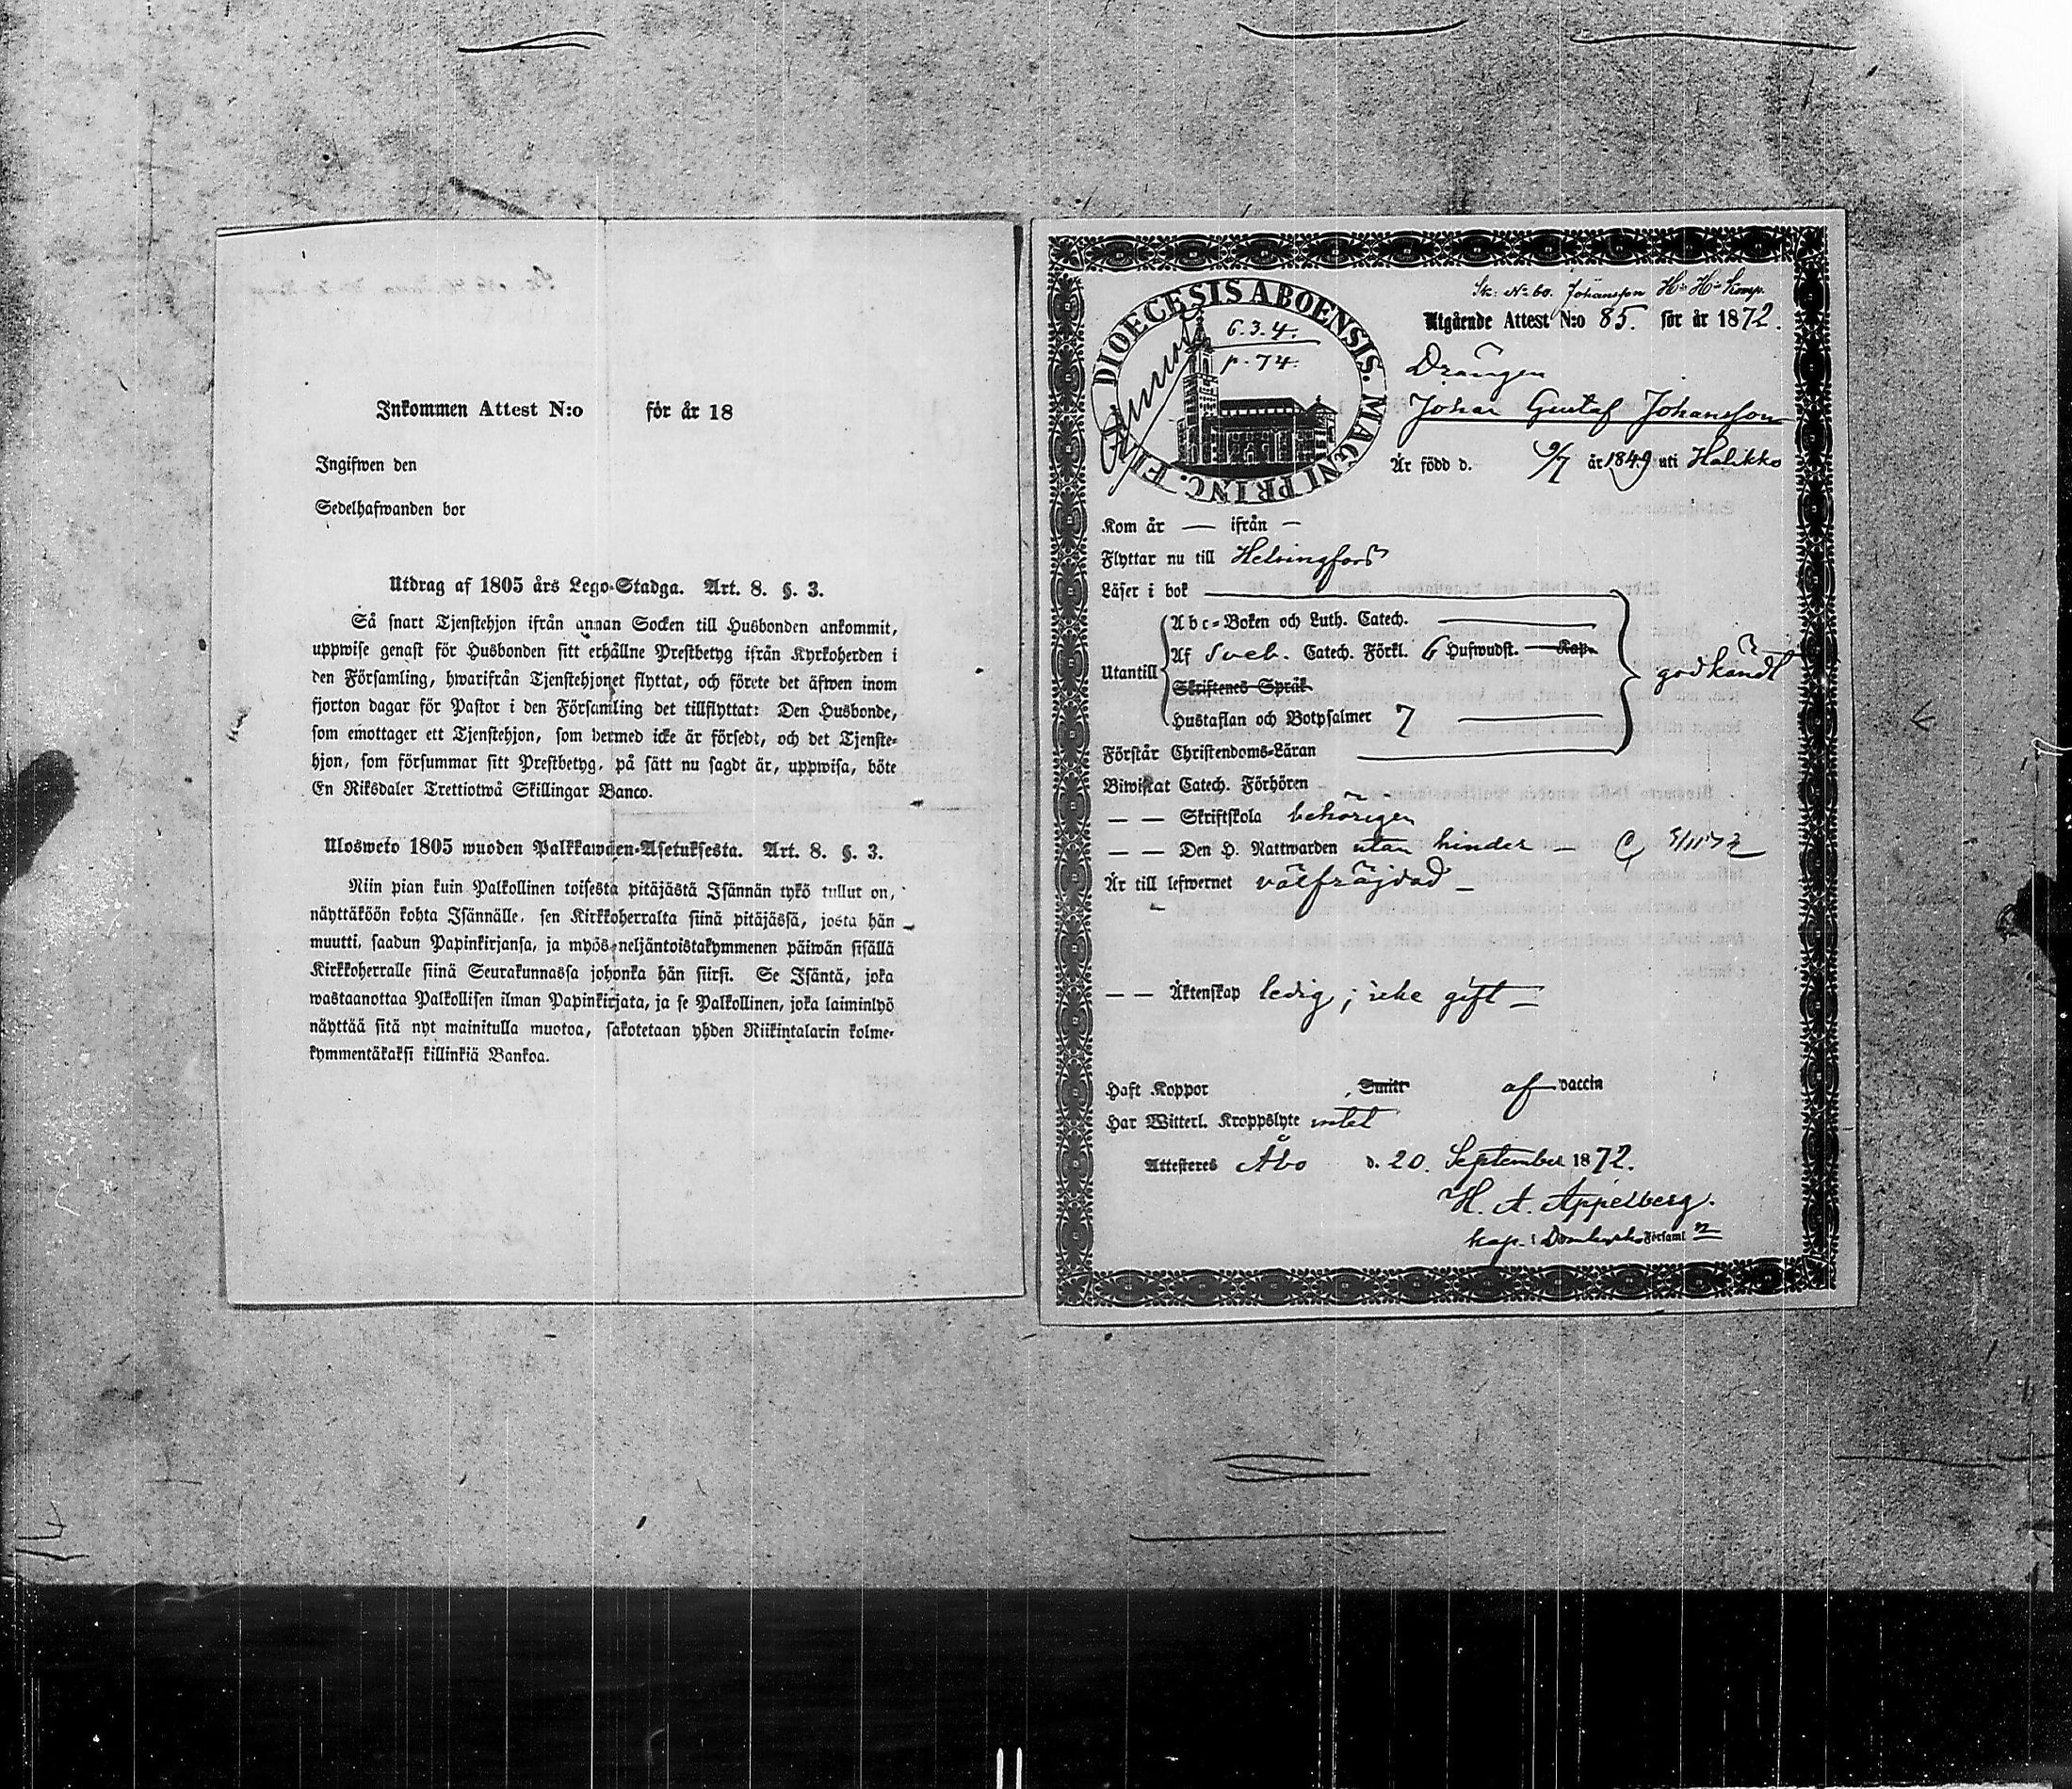 Inkommen Attest N:o för år 18
Ingifwen den
Sedelhafwanden bor
Utdrag af 1805 års Lego-Stadga. Art. 8. §. 3.
Så snart Tjenstehjon ifrån annan Socken till Husbonden ankommit,
uppwise genast för Husbonden sitt erhållne Prestbetyg ifrån Kyrkoherden i
den Församling, hwarifrån Tjenstehjonet flyttat, och förete det äfwen inom
fjorton dagar för Pastor i den Församling det tillflyttat: Den Husbonde,
som emottager ett Tjenstehjon, som dermed icke är försedt, och det Tjenste-
hjon, som försummar sitt Prestbetyg, på sätt nu sagdt är, uppwisa, böte
En Riksdaler Trettiotwå Skillingar Banco.
Ulosweto 1805 wuoden Palkkawäen-Asetuksesta. Art. 8. §. 3.
Niin pian kuin Palkollinen toisesta pitäjästä Isännän tykö tullut on,
näyttäköön kohta Isännälle, sen Kirkkoherralta siinä pitäjässä, josta hän
muutti, saadun Papinkirjansa, ja myös neljäntoistakymmenen päiwän sisällä
Kirkkoherralle siinä Seurakunnassa johonka hän siirsi. Se Isäntä, joka
wastaanottaa Palkollisen ilman Papinkirjata, ja se Palkollinen, joka laiminlyö
näyttää sitä nyt mainitulla muotoa, sakotetaan yhden Riikintalarin kolme-
kymmentäkaksi killinkiä Bankoa.
DIOECESIS ABOENSIS. MAGNI PRINC. FI
6.3.4.
p. 74.
Sk: N:o 60. Johansson H:H: Komp.
Utgående Attest N:o 85. för år 1872.
Drängen
Johan Gustaf Johansson
Är född d. 9/7 år 1849 uti Halikko
Kom år — ifrån —
Flyttar nu till Helsingfors
Läser i bok
Abc-Boken och Luth. Catech.
Utantill Af Sveb. Catech. Förkl. 6 Hufwudst. Kap. godkändt
Skriftenes Språk
Hustaflan och Botpsalmer 7
Förstår Christendoms-Läran
Biwistat Catech. Förhören
— — Skriftskola behörigen
— — Den H. Nattwarden utan hinder — C, 3/11 72
Är till lefwernet välfräjdad —
— — Äktenskap ledig; icke gift —
Haft Koppor , Smitt af vaccin
Har Witterl. Kroppslyte intet
Attesteres Åbo d. 20. September 1872.
H. A. Appelberg.
kap. i Domkyrko Församl n